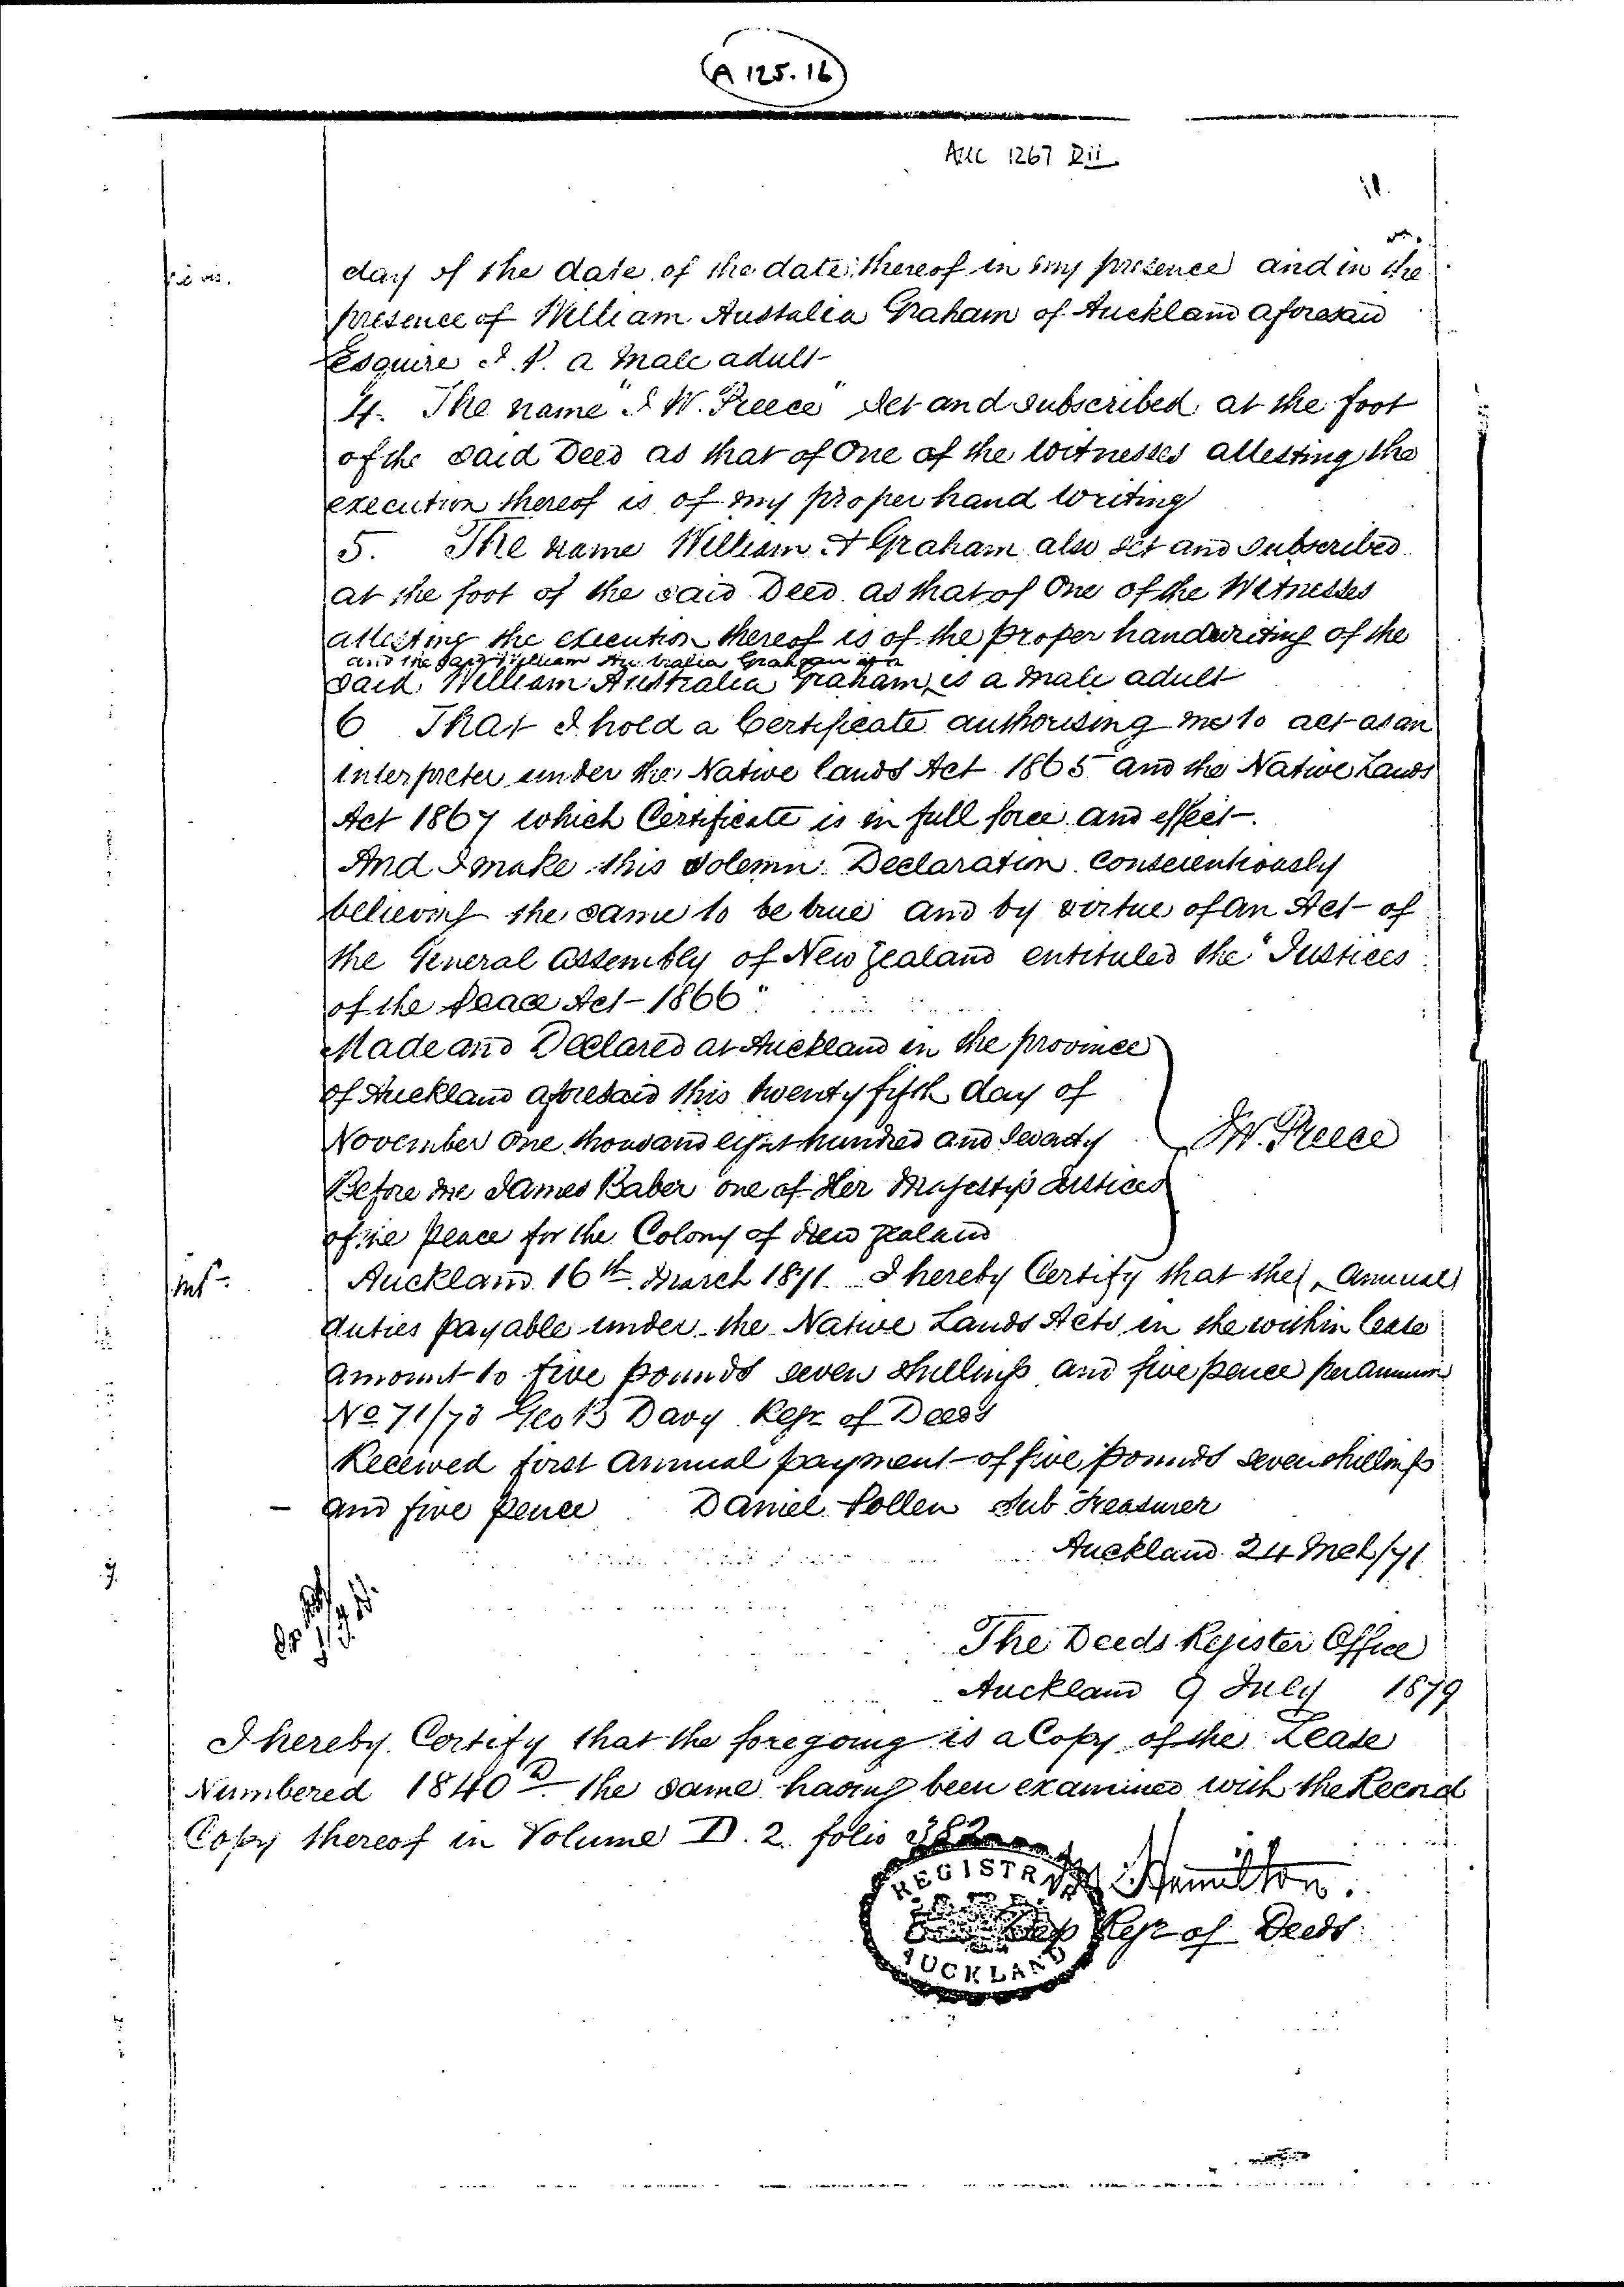 A 125.16
AUC 1267 Dii
11.
day of the date of the date thereof in my presence and in the
presence of William Australia Graham of Auckland aforesaid
Esquire J. P. a male adult
4. The name "J W. Preece" set and subscribed at the foot
of the said Deed as that of One of the Witnesses attesting the
execution thereof is of my proper hand writing
5. The name William A Graham also set and subscribed
at the foot of the said Deed as that of One of the Witnesses
attesting the execution thereof is of the proper handwriting of the
and the said William Australia Graham is a
said William Australia Graham is a male adult
6 That I hold a Certificate authorising me to act as an
interpreter under the Native lands Act 1865 and the Native Lands
Act 1867 which Certificate is in full force and effect.
And I make this solemn Declaration conscientiously
believing the same to be true and by virtue of an Act of
the General Assembly of New Zealand entituled the "Justices
of the Peace Act 1866"
Made and Declared at Auckland in the province
of Auckland aforesaid this twenty fifth day of
November one thousand eight hundred and seventy
J W. Preece
Before me James Baber one of Her Majesty's Justices
of the Peace for the Colony of New Zealand
Auckland 16th March 1871 I hereby Certify that the annual
duties payable under the Native Lands Acts in the within lease
amount to five pounds seven shillings and five pence per annum
No 71/73 Geo B Davy Regr of Deeds
Received first annual payment of five pounds seven shillings
and five pence Daniel Pollen Sub Treasurer
Auckland 24 Mch/71
The Deeds Register Office
Auckland 9 July 1879
I hereby Certify that the foregoing is a Copy of the Lease
Numbered 1840 D the same having been examined with the Record
Copy thereof in Volume D. 2. folio 382
Hamilton.
Dep Regr of Deeds
REGISTRAR
AUCKLAND